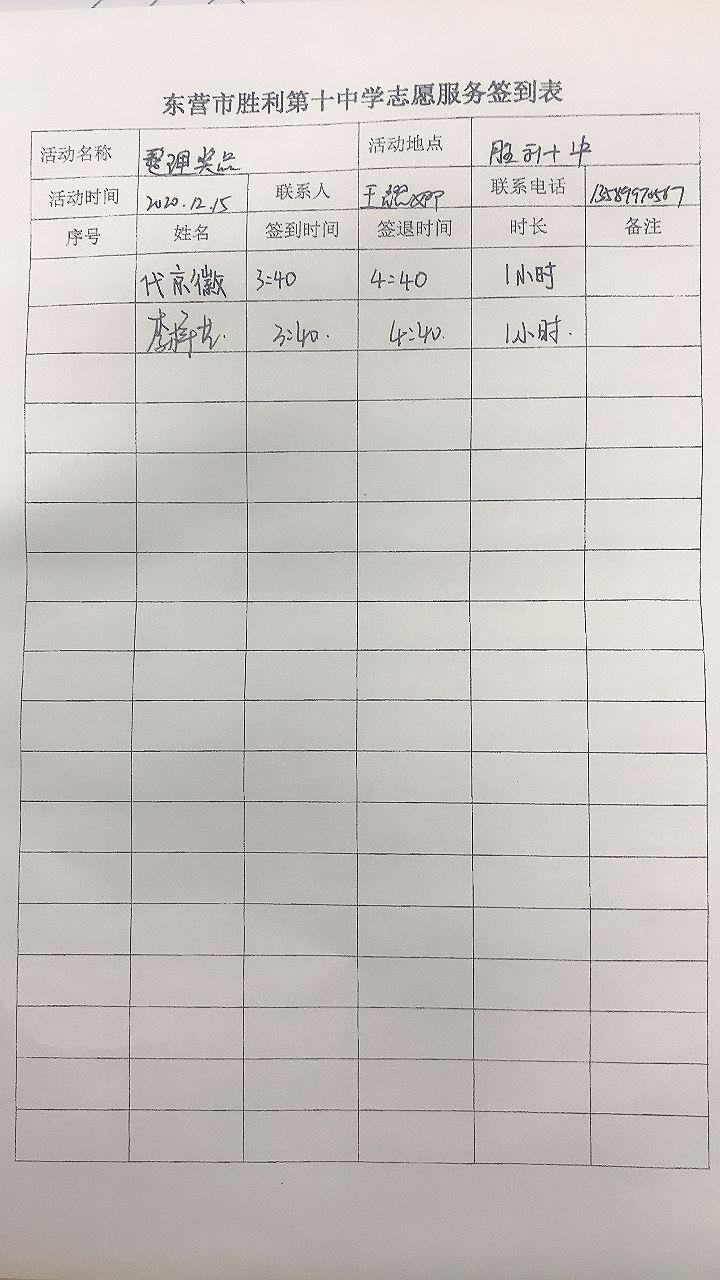 东营市胜利第十中学志愿服务签到表
活动名称 整理奖品 活动地点 胜利十中
活动时间 2020.12.15 联系人 王 联系电话 13589970567
序号 姓名 签到时间 签退时间 时长 备注
代京徽 3:40 4:40 1小时
李梓 3:40. 4:40. 1小时.